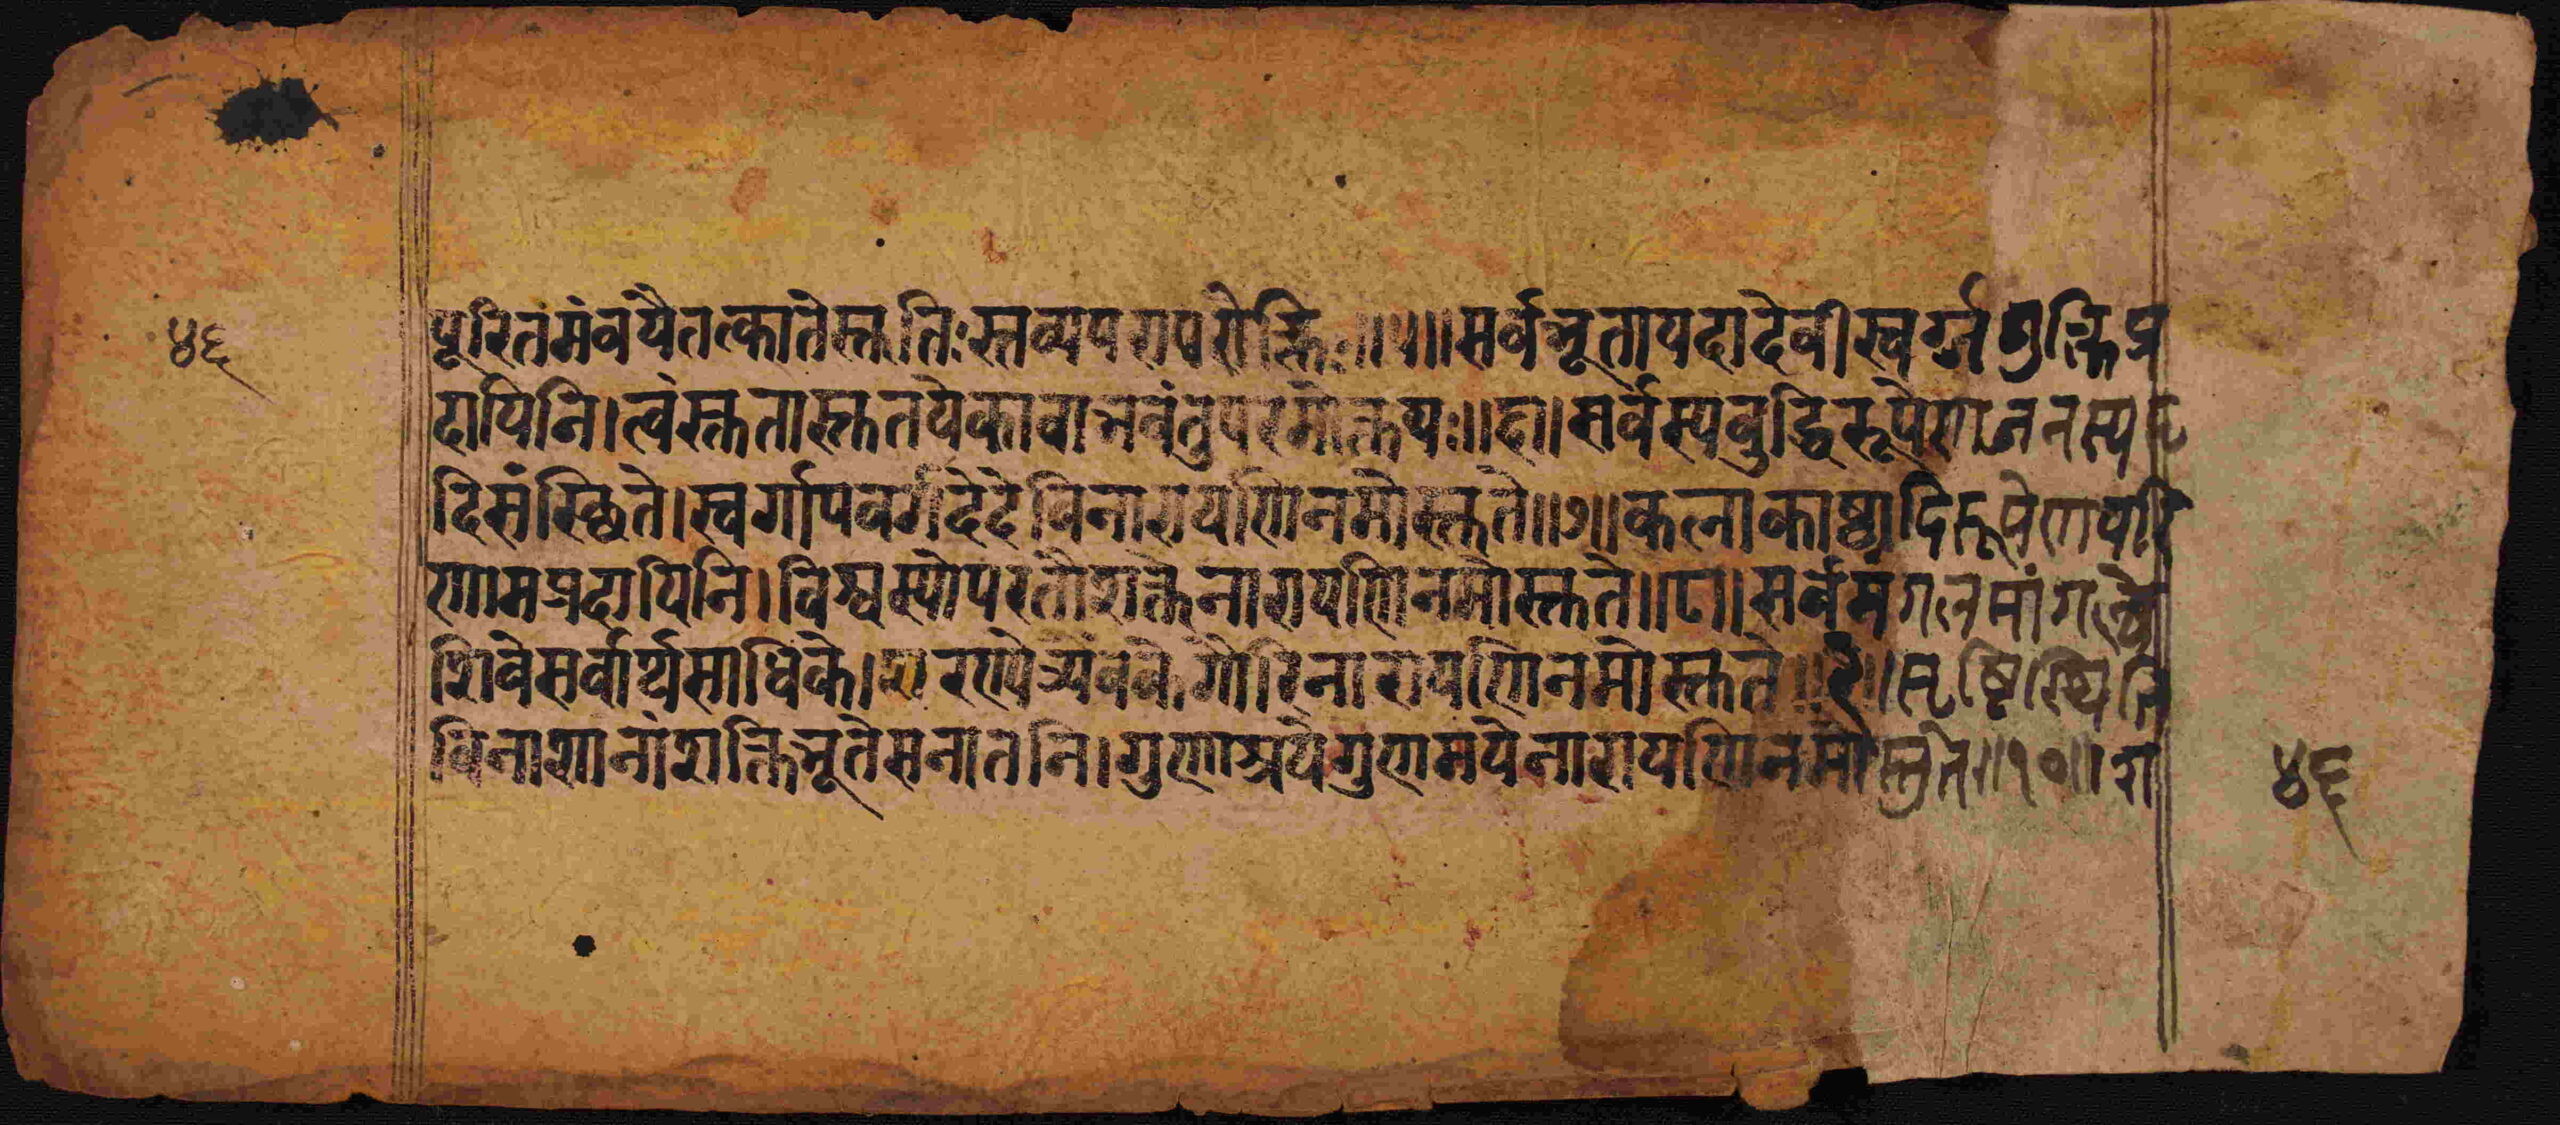 पूरितमंवयैतत्कातेस्तुतिःस्तव्यपरापरोक्तिः॥५॥सर्वभूतायदादेवीस्वर्गभुक्तिप्र
दायिनि।त्वंस्तुतास्तुतयेकावाभवंतुपरमोक्तयः॥६॥सर्वस्यबुद्धिरूपेणजनस्यहृ
दिसंस्थिते।स्वर्गापवर्गदेदेविनारायणिनमोस्तुते॥७॥कलाकाष्ठादिरूपेणपरि
णामप्रदायिनि।विश्वस्योपरतौशक्तेनारायणिनमोस्तुते॥८॥सर्वमंगलमांगल्ये
शिवेसर्वार्थसाधिके।शरण्येत्र्यंबकेगौरिनारायणिनमोस्तुते॥९॥सृष्टिस्थिति
विनाशानांशक्तिभूतेसनातनि।गुणाश्रयेगुणमयेनारायणिनमोस्तुते॥१०॥श
४६
४६